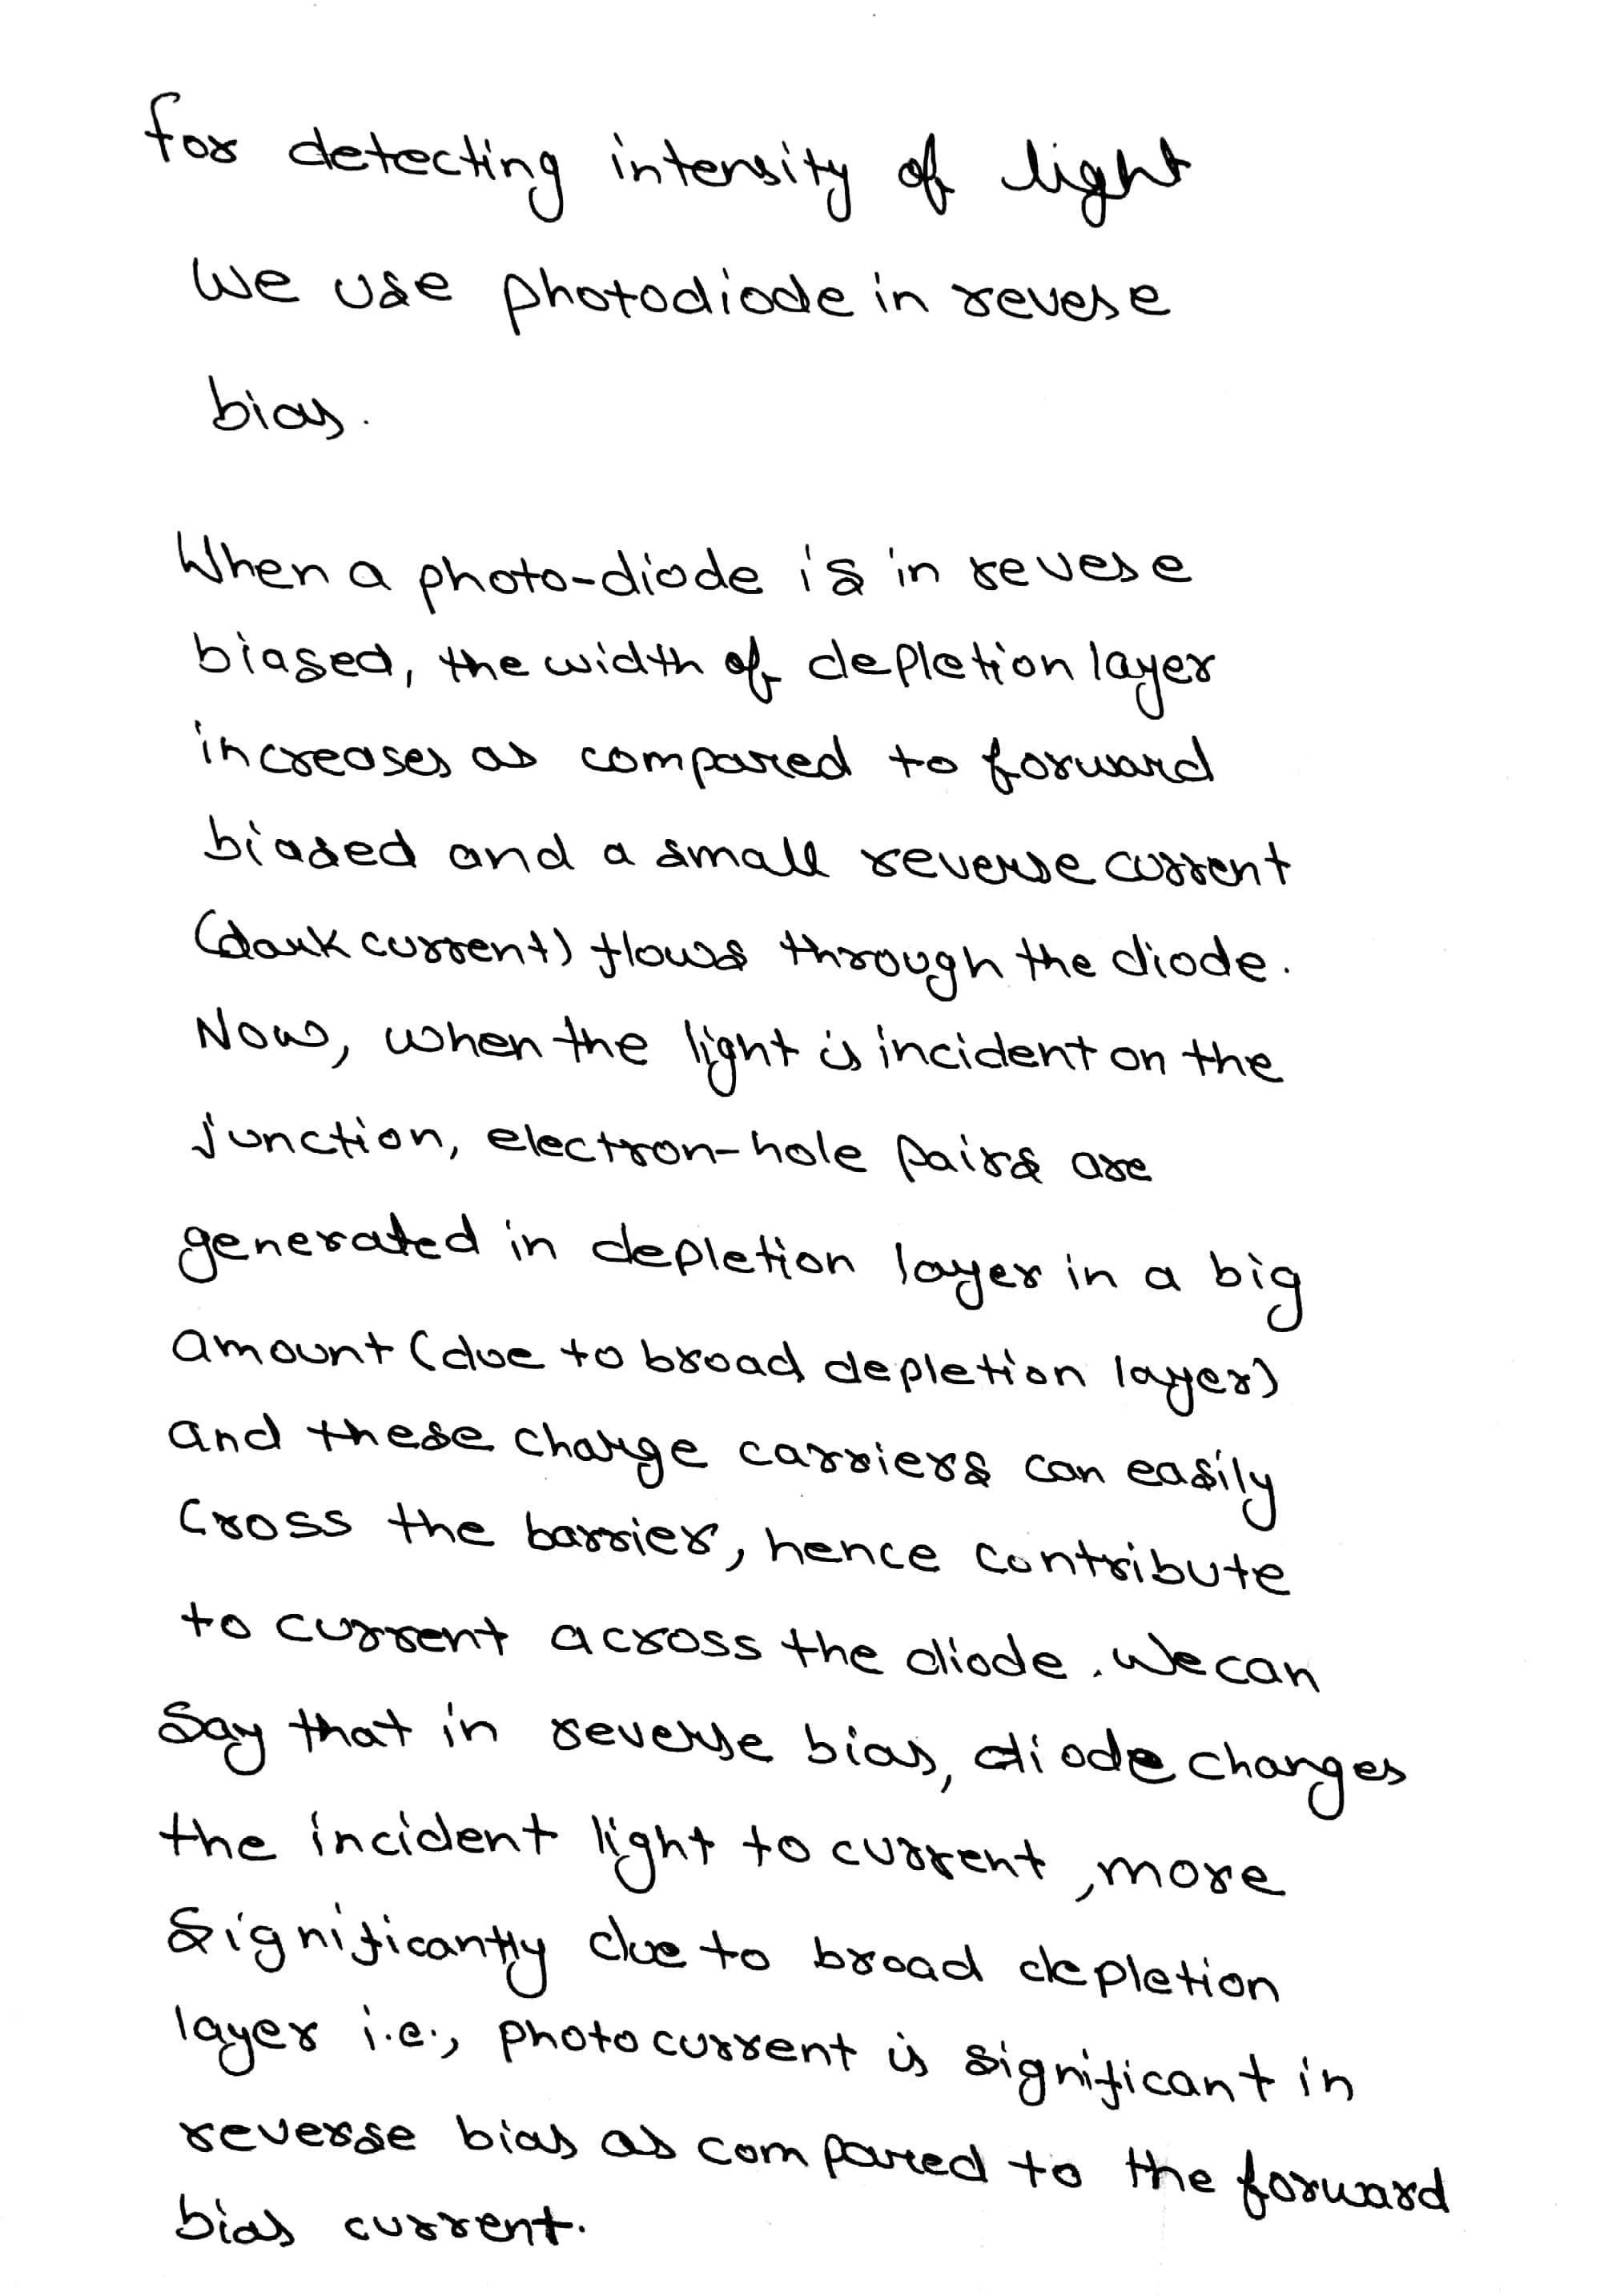 for detecting intensity of light
we use photodiode in revese
bias.
When a photo-diode is in revese
biased, the width of depletion layer
increases as compared to forward
biased and a small reverse current
(dark current) flows through the diode.
Now, when the light is incident on the
junction, electron-hole pairs are
generated in depletion layer in a big
amount (due to broad depletion layer)
and these charge carriers can easily
cross the barrier, hence contribute
to current across the diode. We can
say that in reverse bias, diode changes
the incident light to current, more
significantly due to broad depletion
layer i.e., photocurrent is significant in
reverse bias as compared to the forward
bias current.